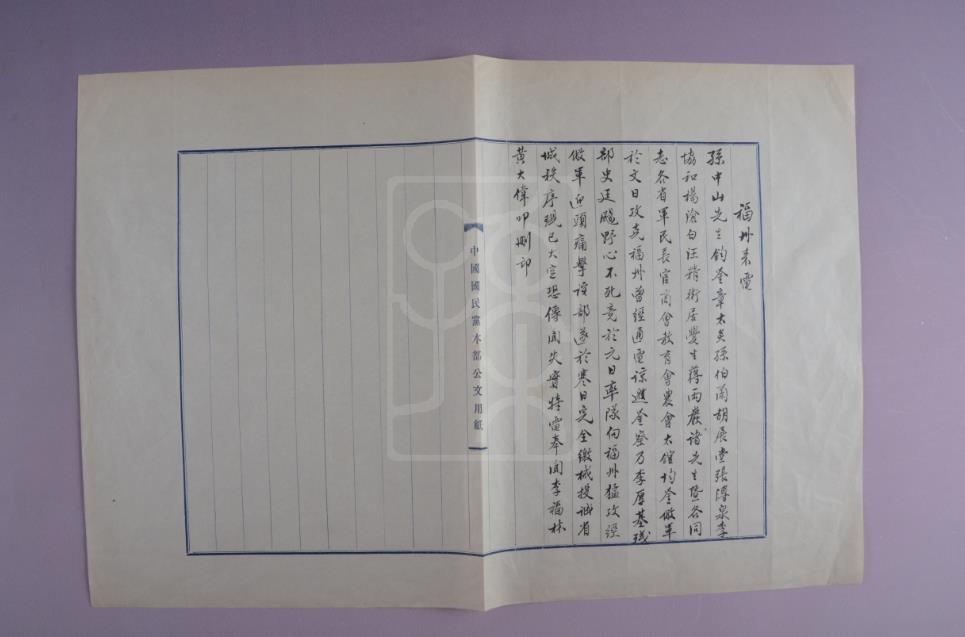 福州來電
孫中山先生鈞鑒章太炎孫伯蘭胡展堂張溥泉李
協和楊滄白汪精衛居覺生蔣雨巖諸先生暨各同
志各省軍民長官商會教育會農會大鑒均鑒敝軍
於文日攻克福州曾經通電諒邀鑒察乃李厚基殘
部史廷颺野心不死竟於元日率隊向福州猛攻經
敝軍迎頭痛擊該部遂於寒日完全繳械投誠省
城秩序現已大定恐傳聞失實特電奉聞李福林
黃大偉叩刪印
中國國民黨本部公文用紙